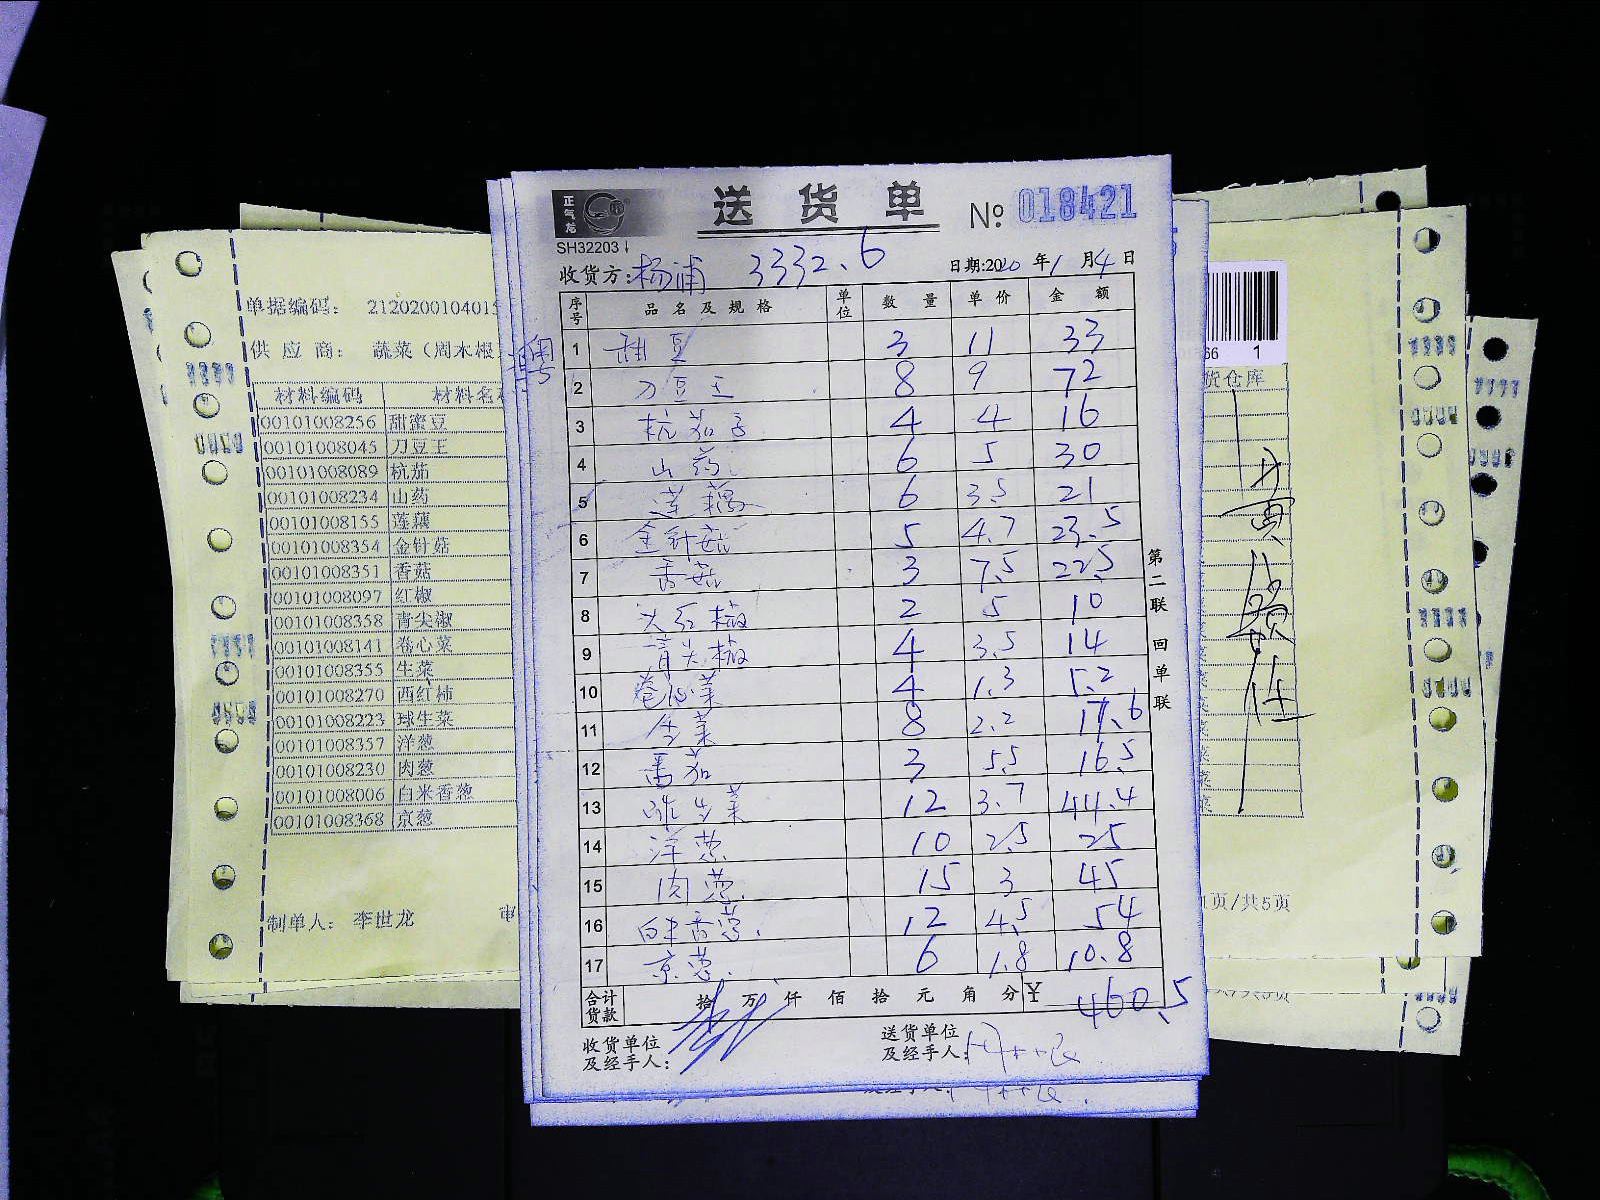 正气龙
送 货 单
№ 018421
SH32203
收货方: 杨浦 3332.6 日期:2020 年 1 月 4 日
序号 品 名 及 规 格 单位 数 量 单 价 金 额
1 甜豆 3 11 33
2 刀豆王 8 9 72
3 杭茄子 4 4 16
4 山药 6 5 30
5 莲藕 6 3.5 21
6 金针菇 5 4.7 23.5
7 香菇 3 7.5 22.5
8 尖红椒 2 5 10
9 青尖椒 4 3.5 14
10 卷心菜 4 1.3 5.2
11 生菜 8 2.2 17.6
12 番茄 3 5.5 16.5
13 球生菜 12 3.7 44.4
14 洋葱 10 2.5 25
15 肉葱 15 3 45
16 白米香葱 12 4.5 54
17 京葱 6 1.8 10.8
合计货款 拾 万 仟 佰 拾 元 角 分 ¥ 460.5
收货单位及经手人:
送货单位及经手人:
第二联 回单联
单据编码: 2120200104015
供 应 商: 蔬菜(周木根
材料编码 材料名
00101008256 甜蜜豆
00101008045 刀豆王
00101008089 杭茄
00101008234 山药
00101008155 莲藕
00101008354 金针菇
00101008351 香菇
00101008097 红椒
00101008358 青尖椒
00101008141 卷心菜
00101008355 生菜
00101008270 西红柿
00101008223 球生菜
00101008357 洋葱
00101008230 肉葱
00101008006 白米香葱
00101008368 京葱
制单人: 李世龙 审
66 1
货仓库
1页/共5页